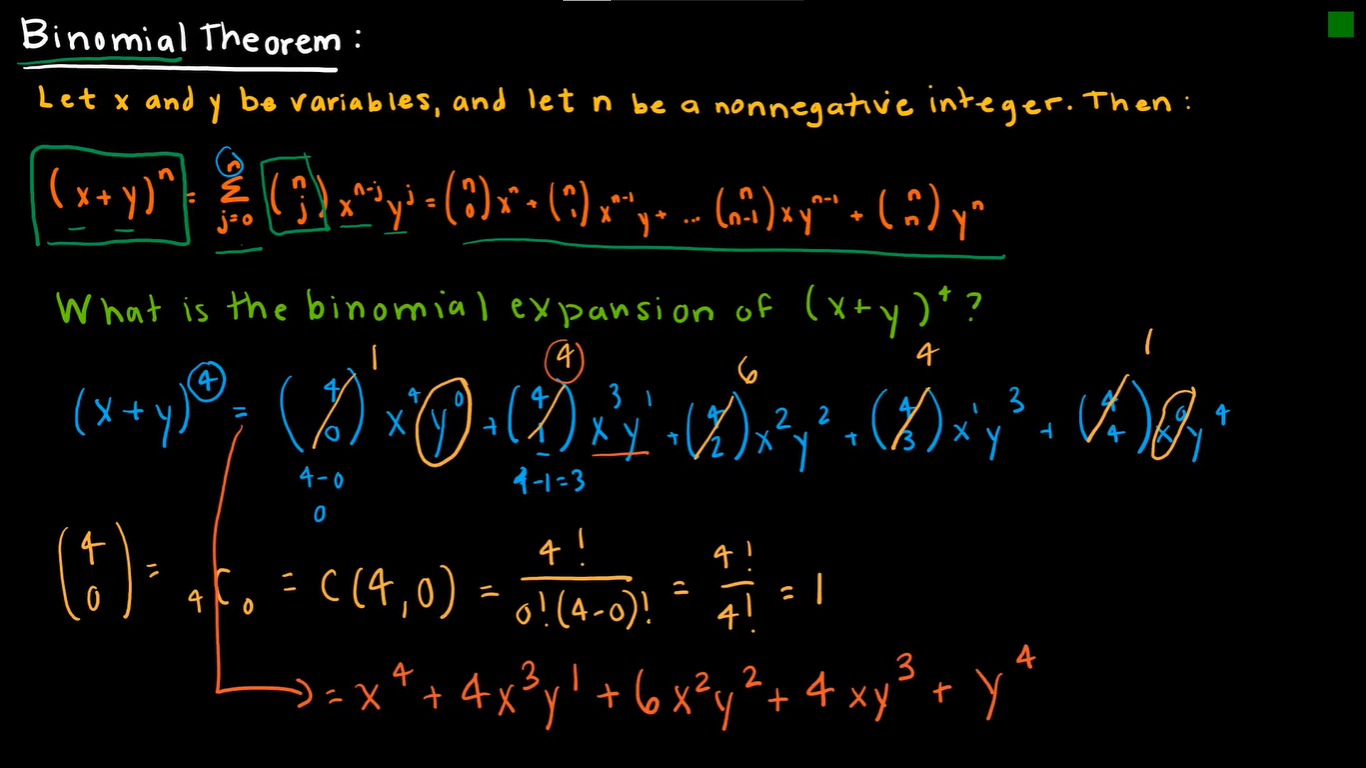 Binomial Theorem:
Let x and y be variables, and let n be a nonnegative integer. Then:
(x+y)^n = Σ_{j=0}^{n} (n j) x^{n-j} y^j = (n 0) x^n + (n 1) x^{n-1} y + ... (n n-1) x y^{n-1} + (n n) y^n
What is the binomial expansion of (x+y)^4?
1 4 6 4 1
(x+y)^4 = (4 0) x^4 y^0 + (4 1) x^3 y^1 + (4 2) x^2 y^2 + (4 3) x^1 y^3 + (4 4) x^0 y^4
4-0 4-1=3
0
(4 0) = 4C0 = C(4,0) = 4!/0!(4-0)! = 4!/4! = 1
= x^4 + 4x^3y^1 + 6x^2y^2 + 4xy^3 + y^4